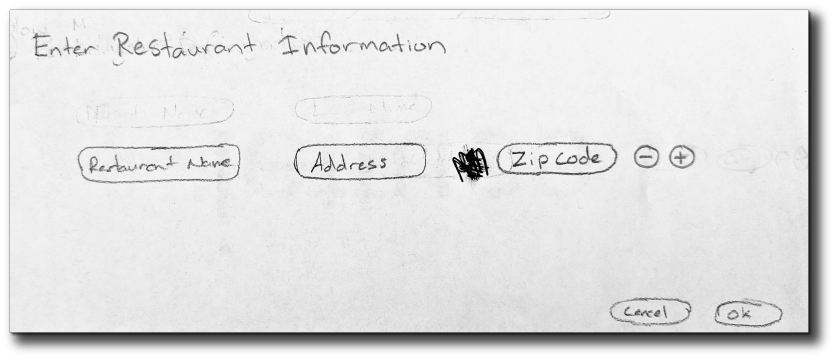 Enter Restaurant Information
Restaurant Name Address Zip Code - +
Cancel OK